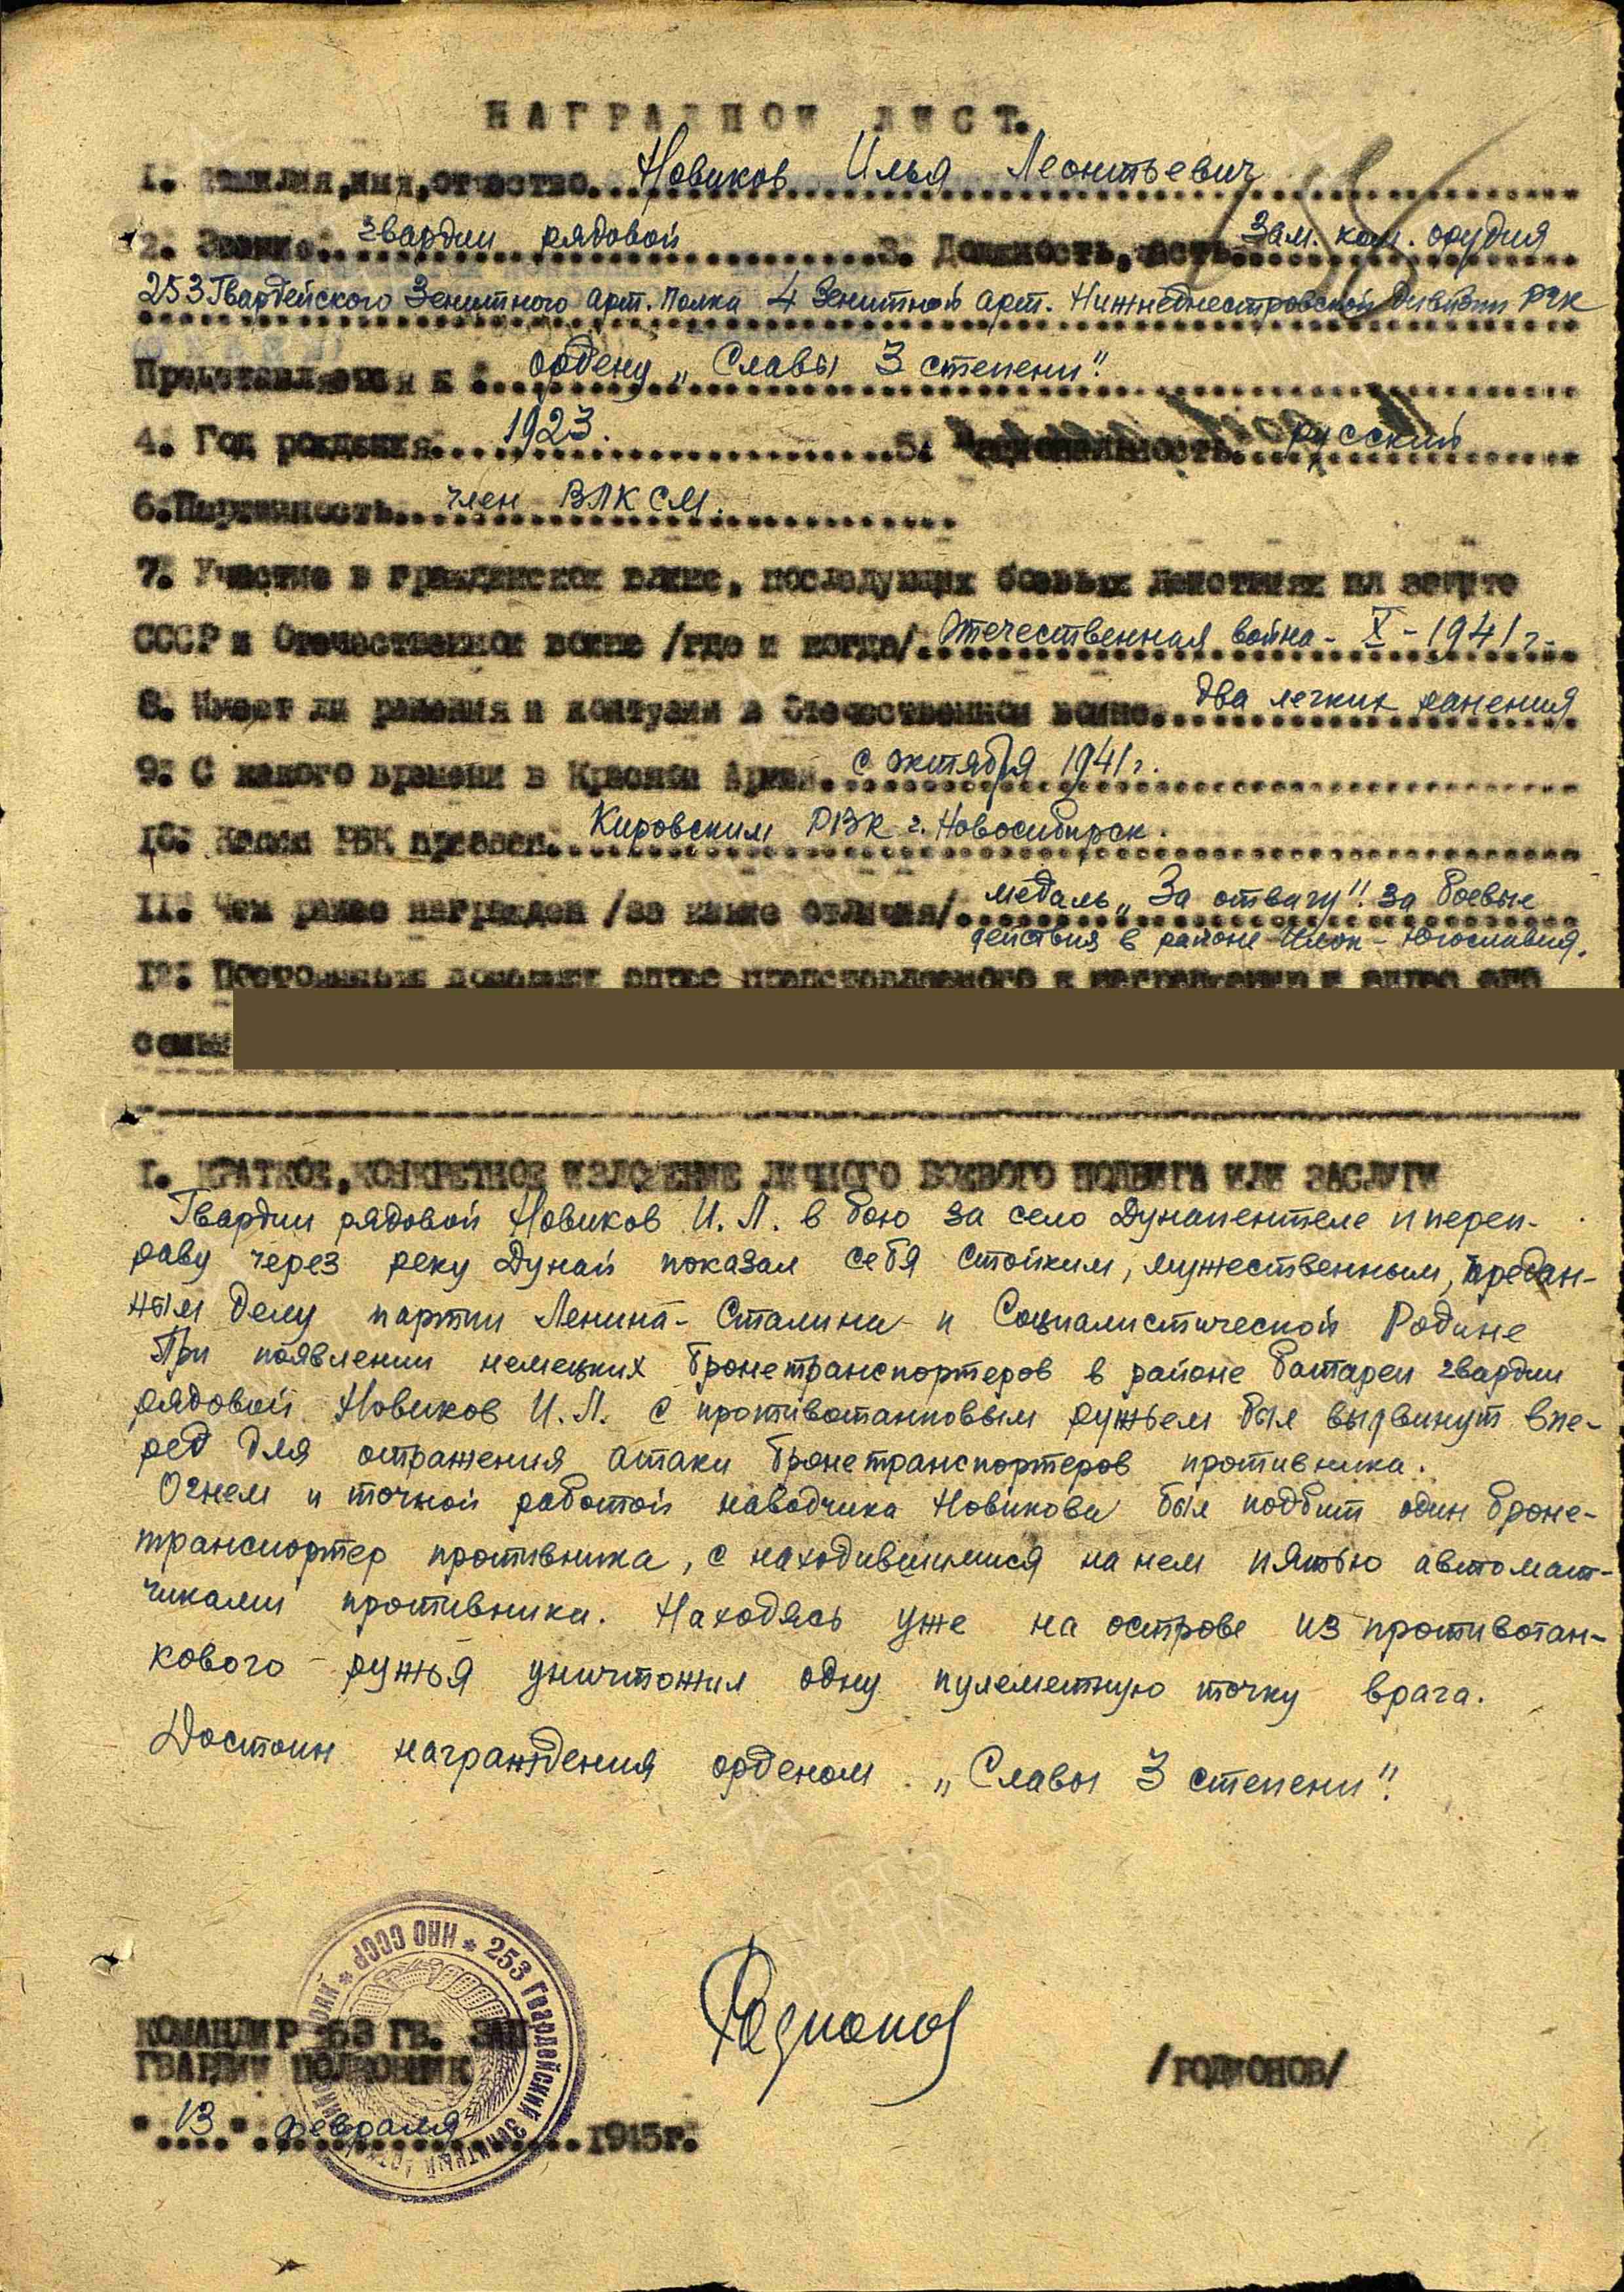 НАГРАДНОЙ ЛИСТ.
1. Фамилия, имя, отчество... Новиков Илья Леонтьевич
2. Звание... гвардии рядовой 3. Должность, часть... Зам. ком. орудия
253 Гвардейского Зенитного арт. полка 4 Зенитной арт. Нижнеднестровской дивизии РГК
Представляется к ордену „Славы 3 степени".
4. Год рождения... 1923. 5. Национальность... русский
6. Партийность... член ВЛКСМ.
7. Участие в гражданской войне, последующих боевых действиях по защите
СССР и Отечественной войне /где и когда/... Отечественная война - X - 1941 г.
8. Имеет ли ранения и контузии в Отечественной войне... два легких ранения
9. С какого времени в Красной Армии... с октября 1941 г.
10. Каким РВК призван... Кировским РВК г. Новосибирск.
11. Чем ранее награжден /за какие отличия/... медаль „За отвагу". за боевые
действия в районе Илок - Югославия.
12. Постоянный домашний адрес представляемого к награждению и адрес его
семьи
I. КРАТКОЕ, КОНКРЕТНОЕ ИЗЛОЖЕНИЕ ЛИЧНОГО БОЕВОГО ПОДВИГА ИЛИ ЗАСЛУГИ
Гвардии рядовой Новиков И. Л. в бою за село Дунапентеле и переп-
раву через реку Дунай показал себя стойким, мужественным, предан-
ным делу партии Ленина - Сталина и Социалистической Родине
При появлении немецких бронетранспортеров в районе батареи гвардии
рядовой Новиков И. Л. с противотанковым ружьем был выдвинут впе-
ред для отражения атаки бронетранспортеров противника.
Огнем и точной работой наводчика Новикова был подбит один броне-
транспортер противника, с находившимися на нем пятью автомат-
чиками противника. Находясь уже на острове из противотан-
кового ружья уничтожил одну пулеметную точку врага.
Достоин награждения орденом „Славы 3 степени".
НКО СССР * 253 Гвардейский Зенитный
КОМАНДИР 253 ГВ. ЗАП
ГВАРДИИ ПОЛКОВНИК
Родионов
/РОДИОНОВ/
"13" февраля 1945 г.